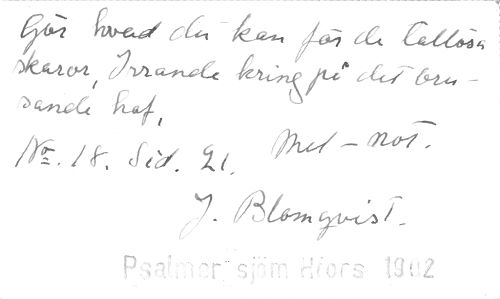 Gör hvad du kan för de tallösa
skaror, Irrande kring på det bru-
sande haf,
No. 18. Sid. 21. Mel-not.
J. Blomqvist.
Psalmer sjöm Hfors 1902